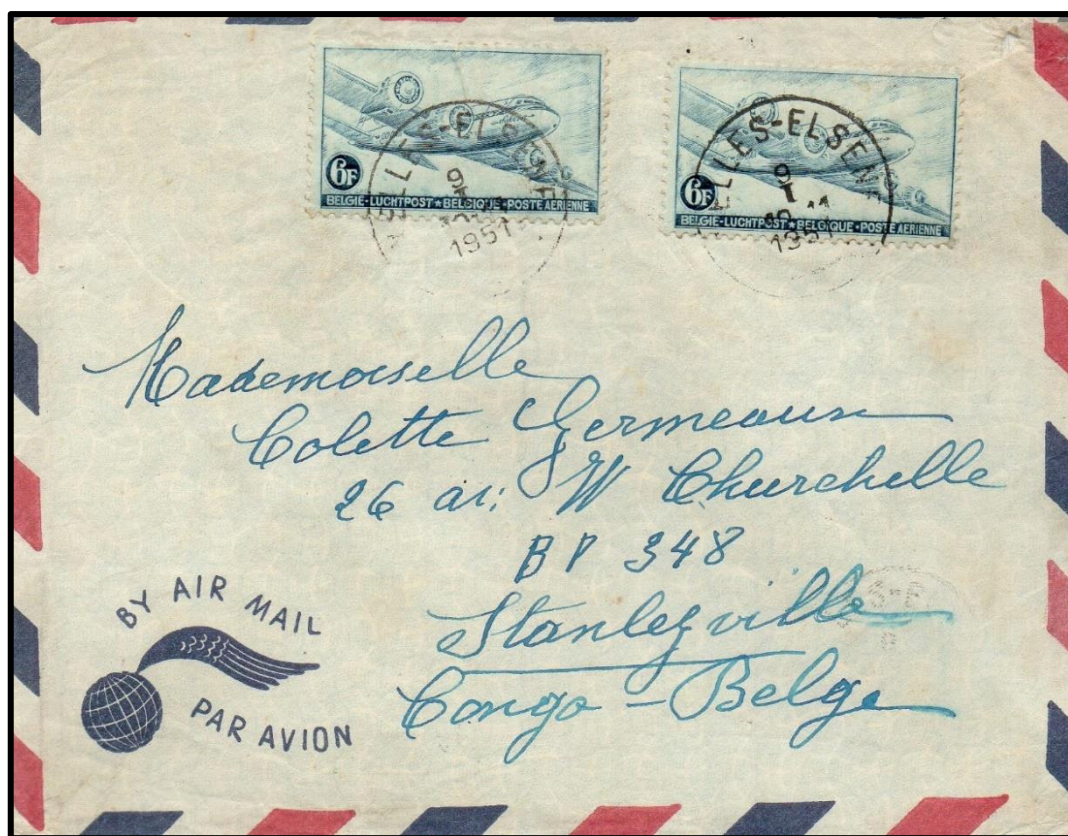 6F
BELGIE-LUCHTPOST★BELGIQUE-POSTE AERIENNE
LLES-ELSENE
9
1951
6F
BELGIE-LUCHTPOST★BELGIQUE-POSTE AERIENNE
LLES-ELSENE
9
1951
Mademoiselle
Colette Germeaux
26 av: W Churchelle
BP 348
Stanleyville
Congo-Belge
BY AIR MAIL
PAR AVION